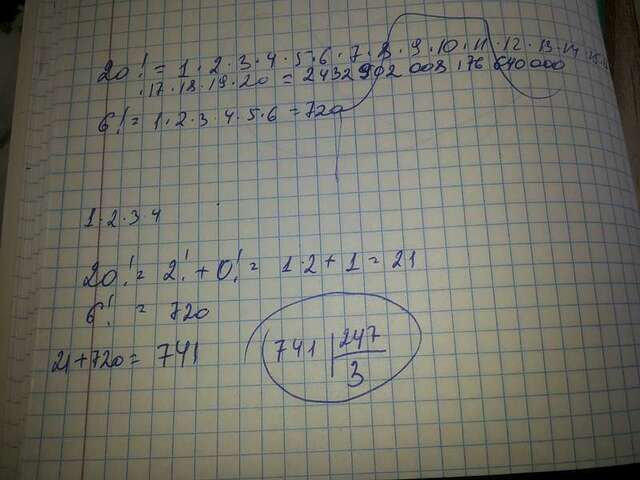 20! = 1 · 2 · 3 · 4 · 5 · 6 · 7 · 8 · 9 · 10 · 11 · 12 · 13 · 14
· 17 · 18 · 19 · 20 = 2432 902 008 176 640 000
6! = 1 · 2 · 3 · 4 · 5 · 6 = 720
1 · 2 · 3 · 4
20! = 2! + 0! = 1 · 2 + 1 = 21
6! = 720
21 + 720 = 741
741 | 247
3